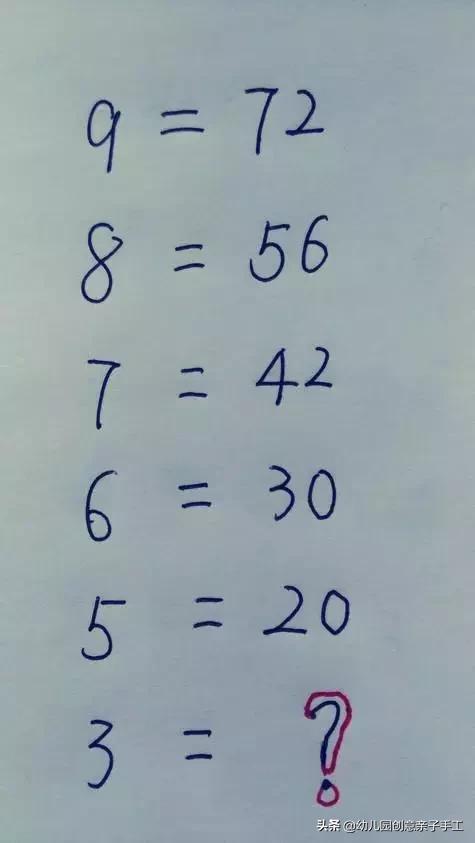 9 = 72
8 = 56
7 = 42
6 = 30
5 = 20
3 = ?
头条 @幼儿园创意亲子手工